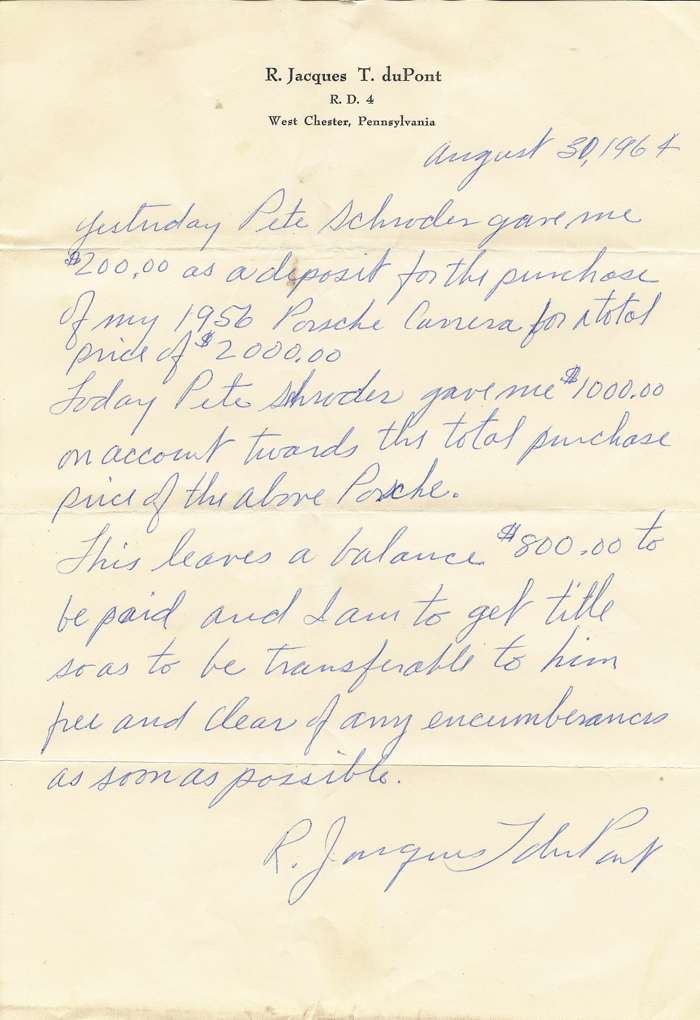 R. Jacques T. duPont
R. D. 4
West Chester, Pennsylvania
August 30, 1964
Yesterday Pete Schroder gave me
$200.00 as a deposit for the purchase
of my 1956 Porsche Carrera for a total
price of $2000.00
Today Pete Schroder gave me $1000.00
on account towards the total purchase
price of the above Porsche.
This leaves a balance $800.00 to
be paid and I am to get title
so as to be transferable to him
free and clear of any encumberances
as soon as possible.
R. Jacques T duPont